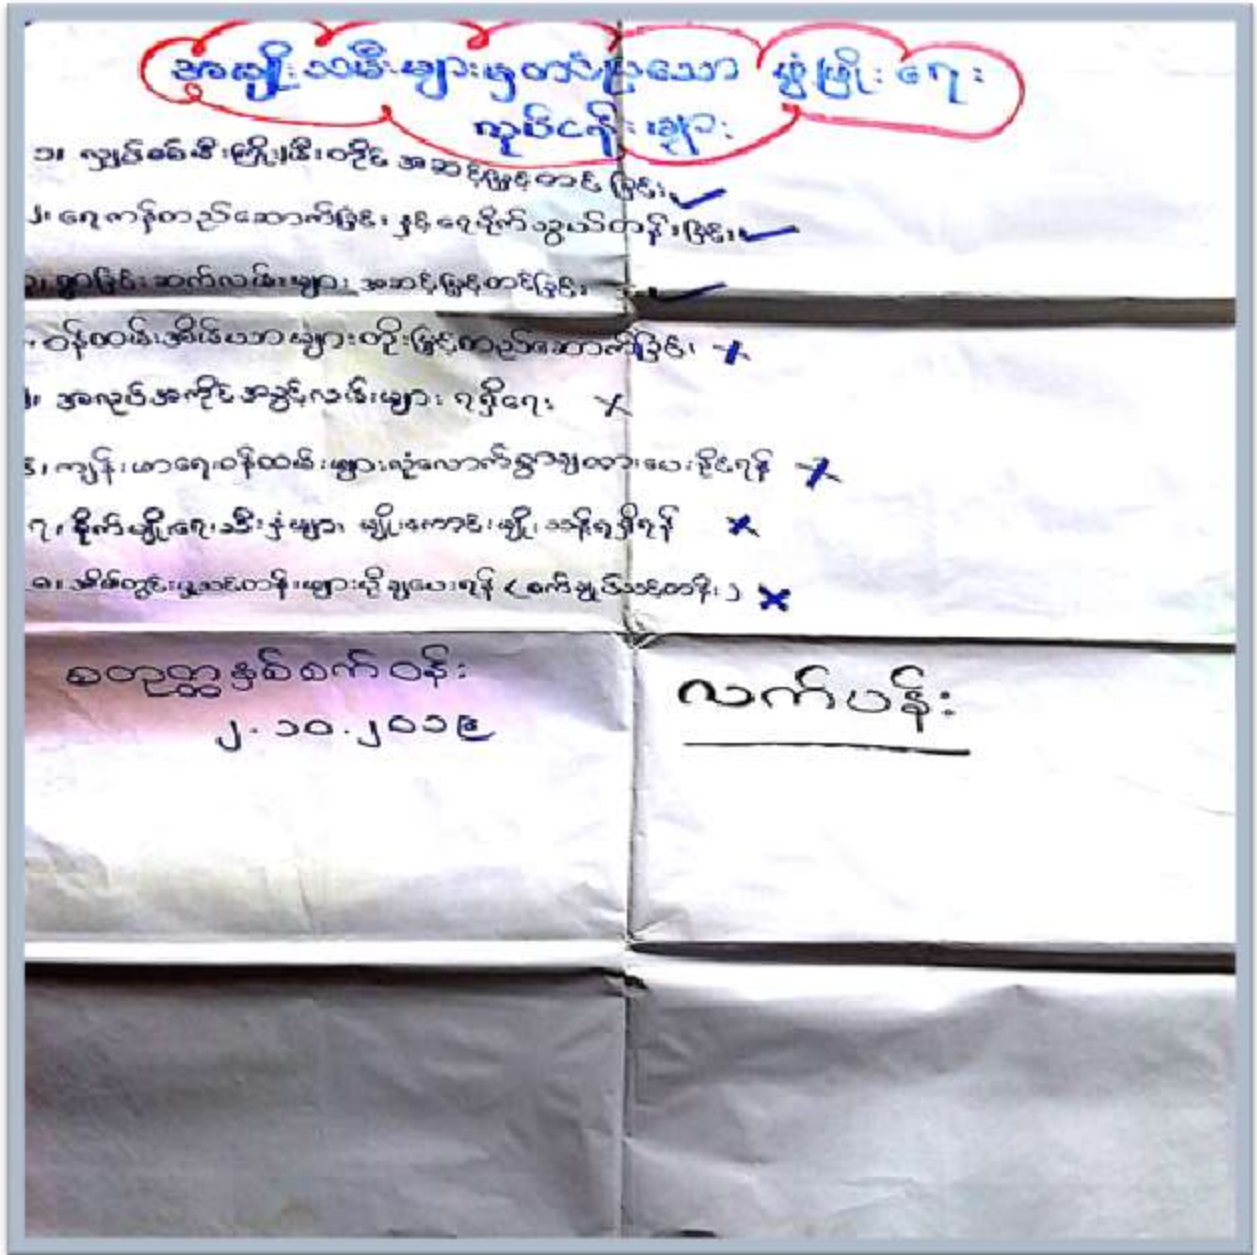 အမျိုးသမီးများမှတင်ပြသော ဖွံ့ဖြိုးရေး
လုပ်ငန်းများ
၁။ လျှပ်စစ်မီးကြိုး၊မီးတိုင် အဆင့်မြှင့်တင်ခြင်း
၂။ ရေကန်တည်ဆောက်ခြင်း နှင့် ရေပိုက်သွယ်တန်းခြင်း
ရွာခြင်းဆက်လမ်းများ အဆင့်မြှင့်တင်ခြင်း
ဝန်ထမ်းအိမ်ယာများတိုးမြှင့်တည်ဆောက်ခြင်း
အလုပ်အကိုင်အခွင့်လမ်းများ ရရှိရေး
ကျန်းမာရေးဝန်ထမ်းများလုံလောက်စွာချထားပေးနိုင်ရန်
၇။ စိုက်ပျိုးရေးသီးနှံများ မျိုးကောင်းမျိုးသန့်ရရှိရန်
၈။ အိမ်တွင်းမှုသင်တန်းများပို့ချပေးရန် ( စက်ချုပ်သင်တန်း )
စတုတ္ထနှစ်စက်ဝန်း
၂.၁၀.၂၀၁၉
လက်ပန်း